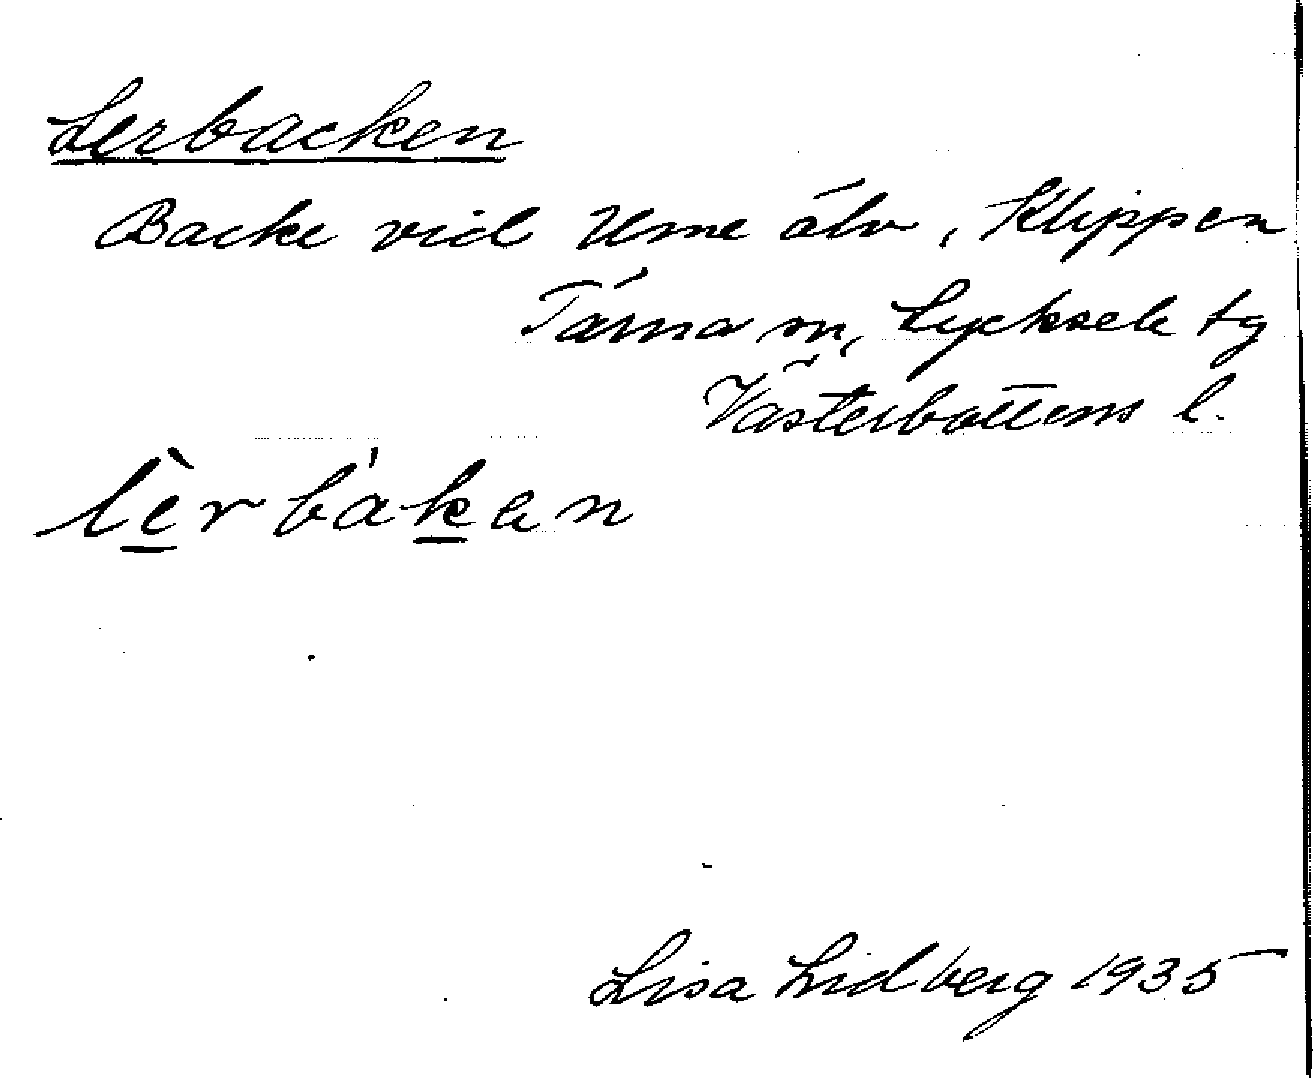 Lerbacken
Backe vid Ume älv, Klippen
Tärna sn, Lycksele tg
Västerbottens l.
lèrbàken
Lisa Lidberg 1935